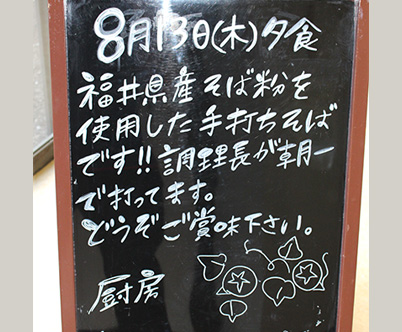 8月13日(木)夕食
福井県産そば粉を
使用した手打ちそば
です!!調理長が朝一
で打ってます。
どうぞご賞味下さい。
厨房